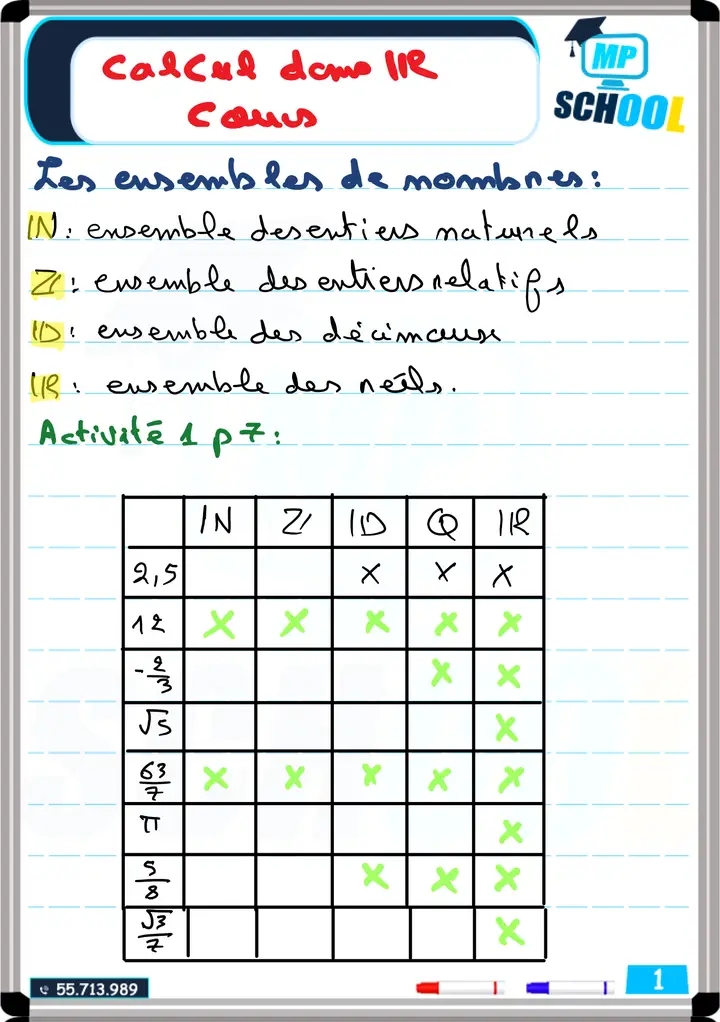 Calcul dans IR
Cours
MP
SCHOOL
Les ensembles de nombres:
IN: ensemble des entiers naturels
Z: ensemble des entiers relatifs
ID: ensemble des décimaux
IR: ensemble des réels.
Activité 1 p 7:
IN Z ID Q IR
2,5 x x x
12 x x x x x
-2/3 x x
√5 x
63/7 x x x x x
π x
5/8 x x x
√3/7 x
55.713.989
1